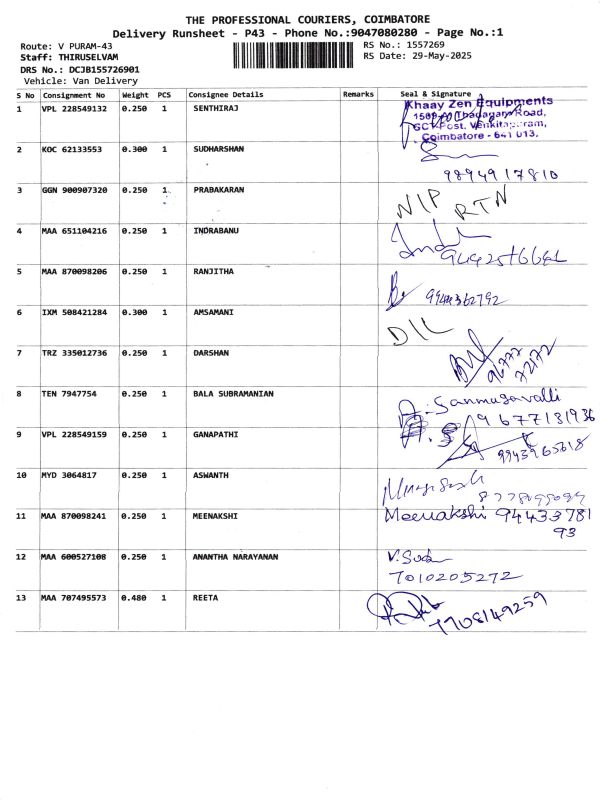 THE PROFESSIONAL COURIERS, COIMBATORE
Delivery Runsheet - P43 - Phone No.:9047080280 - Page No.:1
Route: V PURAM-43
RS No.: 1557269
Staff: THIRUSELVAM
RS Date: 29-May-2025
DRS No.: DCJB155726901
Vehicle: Van Delivery
S No Consignment No Weight PCS Consignee Details Remarks Seal & Signature
1 VPL 228549132 0.250 1 SENTHIRAJ
Khaay Zen Equipments
Thadagam Road,
Post, Venkitapuram,
Coimbatore - 641 013.
2 KOC 62133553 0.300 1 SUDHARSHAN
9894917810
3 GGN 900907320 0.250 1 PRABAKARAN NIP RTN
4 MAA 651104216 0.250 1 INDRABANU
5 MAA 870098206 0.250 1 RANJITHA 9944362792
6 IXM 508421284 0.300 1 AMSAMANI D/L
7 TRZ 335012736 0.250 1 DARSHAN
96777
72172
8 TEN 7947754 0.250 1 BALA SUBRAMANIAN Sanmugavalli
9677131936
9 VPL 228549159 0.250 1 GANAPATHI
9943965618
10 MYD 3064817 0.250 1 ASWANTH
11 MAA 870098241 0.250 1 MEENAKSHI Meenakshi 94433781
93
12 MAA 600527108 0.250 1 ANANTHA NARAYANAN
7010205272
13 MAA 707495573 0.480 1 REETA
7708149259